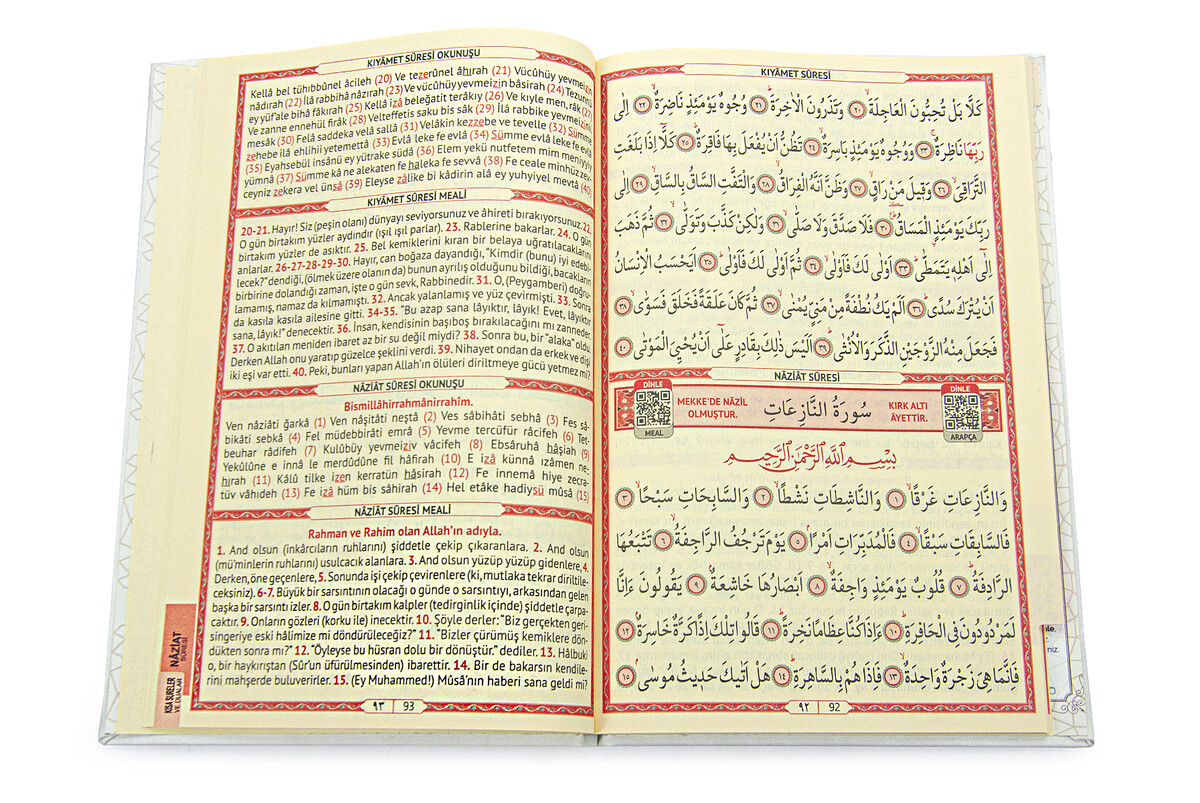 KIYÂMET SÛRESİ
كَلَّا بَلْ تُحِبُّونَ الْعَاجِلَةَ ﴿٢٠﴾ وَتَذَرُونَ الْاٰخِرَةَ ﴿٢١﴾ وُجُوهٌ يَوْمَئِذٍ نَاضِرَةٌ ﴿٢٢﴾ اِلٰى
رَبِّهَا نَاظِرَةٌ ﴿٢٣﴾ وَوُجُوهٌ يَوْمَئِذٍ بَاسِرَةٌ ﴿٢٤﴾ تَظُنُّ اَنْ يُفْعَلَ بِهَا فَاقِرَةٌ ﴿٢٥﴾ كَلَّا اِذَا بَلَغَتِ
التَّرَاقِيَ ﴿٢٦﴾ وَقِيلَ مَنْ رَاقٍ ﴿٢٧﴾ وَظَنَّ اَنَّهُ الْفِرَاقُ ﴿٢٨﴾ وَالْتَفَّتِ السَّاقُ بِالسَّاقِ ﴿٢٩﴾ اِلٰى
رَبِّكَ يَوْمَئِذٍ الْمَسَاقُ ﴿٣٠﴾ فَلَا صَدَّقَ وَلَا صَلّٰى ﴿٣١﴾ وَلٰكِنْ كَذَّبَ وَتَوَلّٰى ﴿٣٢﴾ ثُمَّ ذَهَبَ
اِلٰٓى اَهْلِهِ يَتَمَطّٰى ﴿٣٣﴾ اَوْلٰى لَكَ فَاَوْلٰى ﴿٣٤﴾ ثُمَّ اَوْلٰى لَكَ فَاَوْلٰى ﴿٣٥﴾ اَيَحْسَبُ الْاِنْسَانُ
اَنْ يُتْرَكَ سُدًى ﴿٣٦﴾ اَلَمْ يَكُ نُطْفَةً مِنْ مَنِيٍّ يُمْنٰى ﴿٣٧﴾ ثُمَّ كَانَ عَلَقَةً فَخَلَقَ فَسَوّٰى ﴿٣٨﴾
فَجَعَلَ مِنْهُ الزَّوْجَيْنِ الذَّكَرَ وَالْاُنْثٰى ﴿٣٩﴾ اَلَيْسَ ذٰلِكَ بِقَادِرٍ عَلٰٓى اَنْ يُحْيِيَ الْمَوْتٰى ﴿٤٠﴾
NÂZİÂT SÛRESİ
DİNLE
MEAL
MEKKE'DE NÂZİL
OLMUŞTUR.
سُورَةُ النَّازِعَاتِ
KIRK ALTI
ÂYETTİR.
DİNLE
ARAPÇA
بِسْمِ اللّٰهِ الرَّحْمٰنِ الرَّحِيمِ
وَالنَّازِعَاتِ غَرْقًا ﴿١﴾ وَالنَّاشِطَاتِ نَشْطًا ﴿٢﴾ وَالسَّابِحَاتِ سَبْحًا ﴿٣﴾
فَالسَّابِقَاتِ سَبْقًا ﴿٤﴾ فَالْمُدَبِّرَاتِ اَمْرًا ﴿٥﴾ يَوْمَ تَرْجُفُ الرَّاجِفَةُ ﴿٦﴾ تَتْبَعُهَا
الرَّادِفَةُ ﴿٧﴾ قُلُوبٌ يَوْمَئِذٍ وَاجِفَةٌ ﴿٨﴾ اَبْصَارُهَا خَاشِعَةٌ ﴿٩﴾ يَقُولُونَ ءَاِنَّا
لَمَرْدُودُونَ فِي الْحَافِرَةِ ﴿١٠﴾ ءَاِذَا كُنَّا عِظَامًا نَخِرَةً ﴿١١﴾ قَالُوا تِلْكَ اِذًا كَرَّةٌ خَاسِرَةٌ ﴿١٢﴾
فَاِنَّمَا هِيَ زَجْرَةٌ وَاحِدَةٌ ﴿١٣﴾ فَاِذَا هُمْ بِالسَّاهِرَةِ ﴿١٤﴾ هَلْ اَتٰيكَ حَدِيثُ مُوسٰى ﴿١٥﴾
٩٢ 92
KIYÂMET SÛRESİ OKUNUŞU
Kellâ bel tühıbbûnel âcileh (20) Ve tezerûnel âhırah (21) Vücûhüy yevmeizin
nâdırah (22) İlâ rabbihâ nâzırah (23) Ve vücûhüy yevmeizin bâsirah (24) Tezunnü
ey yüf'ale bihâ fâkırah (25) Kellâ izâ beleğatit terâkıy (26) Ve kıyle men, râk (27)
Ve zanne ennehül firâk (28) Velteffetis saku bis sâk (29) İlâ rabbike yevmeizinil
mesâk (30) Felâ saddeka velâ sallâ (31) Velâkin kezzebe ve tevelle (32) Sümme
zehebe ilâ ehlihii yetemettâ (33) Evlâ leke fe evlâ (34) Sümme evlâ leke fe evlâ
(35) Eyahsebül insânü ey yütrake südâ (36) Elem yekü nutfetem mim meniyyiy
yümnâ (37) Sümme kâ ne alekaten fe haleka fe sevvâ (38) Fe ceale minhüz zev-
ceyniz zekera vel ünsâ (39) Eleyse zâlike bi kâdirin alâ ey yuhyiyel mevtâ (40)
KIYÂMET SÛRESİ MEALİ
20-21. Hayır! Siz (peşin olanı) dünyayı seviyorsunuz ve âhireti bırakıyorsunuz. 22.
O gün birtakım yüzler aydındır (ışıl ışıl parlar). 23. Rablerine bakarlar. 24. O gün
birtakım yüzler de asıktır. 25. Bel kemiklerini kıran bir belaya uğratılacaklarını
anlarlar. 26-27-28-29-30. Hayır, can boğaza dayandığı, "Kimdir (bunu) iyi edebi-
lecek?" dendiği, (ölmek üzere olanın da) bunun ayrılış olduğunu bildiği, bacakların
birbirine dolandığı zaman, işte o gün sevk, Rabbinedir. 31. O, (Peygamberi) doğru-
lamamış, namaz da kılmamıştı. 32. Ancak yalanlamış ve yüz çevirmişti. 33. Sonra
da kasıla kasıla ailesine gitti. 34-35. "Bu azap sana lâyıktır, lâyık! Evet, lâyıktır
sana, lâyık!" denecektir. 36. İnsan, kendisinin başıboş bırakılacağını mı zanneder.
37. O akıtılan meniden ibaret az bir su değil miydi? 38. Sonra bu, bir "alaka" oldu.
Derken Allah onu yaratıp güzelce şeklini verdi. 39. Nihayet ondan da erkek ve dişi
iki eşi var etti. 40. Peki, bunları yapan Allah'ın ölüleri diriltmeye gücü yetmez mi?
NÂZİÂT SÛRESİ OKUNUŞU
Bismillâhirrahmânirrahîm.
Ven nâziâti ğarkâ (1) Ven nâşitâti neştâ (2) Ves sâbihâti sebhâ (3) Fes sâ-
bikâti sebkâ (4) Fel müdebbirâti emrâ (5) Yevme tercüfür râcifeh (6) Tet-
beuhar râdifeh (7) Kulûbüy yevmeiziv vâcifeh (8) Ebsâruhâ hâşiah (9)
Yekûlûne e innâ le merdûdûne fil hâfirah (10) E izâ künnâ ızâmen ne-
hırah (11) Kâlû tilke izen kerratün hâsirah (12) Fe innemâ hiye zecra-
tüv vâhıdeh (13) Fe izâ hüm bis sâhirah (14) Hel etâke hadiysü mûsâ (15)
NÂZİÂT SÛRESİ MEALİ
Rahman ve Rahim olan Allah'ın adıyla.
1. And olsun (inkârcıların ruhlarını) şiddetle çekip çıkaranlara. 2. And olsun
(mü'minlerin ruhlarını) usulcacık alanlara. 3. And olsun yüzüp yüzüp gidenlere, 4.
Derken, öne geçenlere, 5. Sonunda işi çekip çevirenlere (ki, mutlaka tekrar diriltile-
ceksiniz). 6-7. Büyük bir sarsıntının olacağı o günde o sarsıntıyı, arkasından gelen
başka bir sarsıntı izler. 8. O gün birtakım kalpler (tedirginlik içinde) şiddetle çarpa-
caktır. 9. Onların gözleri (korku ile) inecektir. 10. Şöyle derler: "Biz gerçekten geri-
singeriye eski hâlimize mi döndürüleceğiz?" 11. "Bizler çürümüş kemiklere dön-
dükten sonra mı?" 12. "Öyleyse bu hüsran dolu bir dönüştür." dediler. 13. Hâlbuki
o, bir haykırıştan (Sûr'un üfürülmesinden) ibarettir. 14. Bir de bakarsın kendile-
rini mahşerde buluverirler. 15. (Ey Muhammed!) Mûsâ'nın haberi sana geldi mi?
٩٣ 93
NÂZİÂT
SÛRESİ
KISA SURELER
VE DUALAR